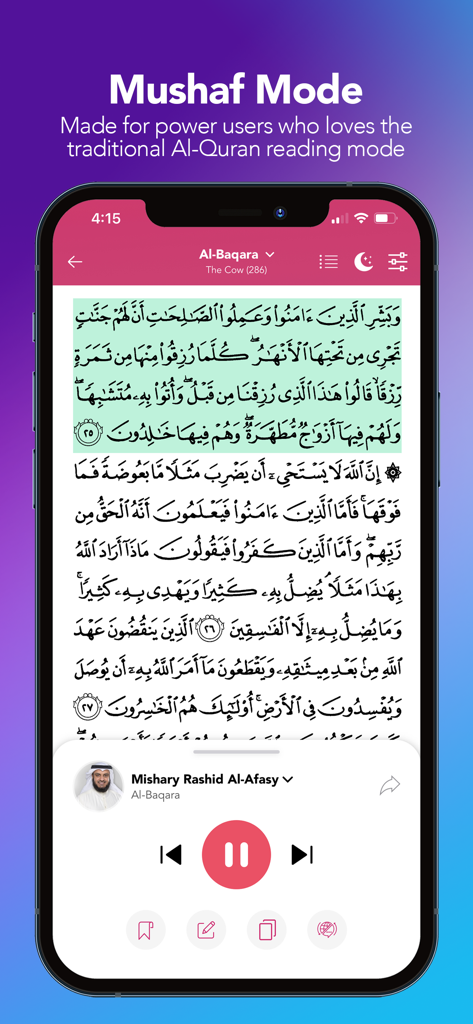 Mushaf Mode
Made for power users who loves the
traditional Al-Quran reading mode
4:15
Al-Baqara
The Cow (286)
وَبَشِّرِ ٱلَّذِينَ ءَامَنُوا۟ وَعَمِلُوا۟ ٱلصَّـٰلِحَـٰتِ أَنَّ لَهُمْ جَنَّـٰتٍ
تَجْرِى مِن تَحْتِهَا ٱلْأَنْهَـٰرُ ۖ كُلَّمَا رُزِقُوا۟ مِنْهَا مِن ثَمَرَةٍ
رِّزْقًا ۙ قَالُوا۟ هَـٰذَا ٱلَّذِى رُزِقْنَا مِن قَبْلُ ۖ وَأُتُوا۟ بِهِۦ مُتَشَـٰبِهًا ۖ
وَلَهُمْ فِيهَآ أَزْوَٰجٌ مُّطَهَّرَةٌ ۖ وَهُمْ فِيهَا خَـٰلِدُونَ ٢٥
۞ إِنَّ ٱللَّهَ لَا يَسْتَحْىِۦٓ أَن يَضْرِبَ مَثَلًا مَّا بَعُوضَةً فَمَا
فَوْقَهَا ۚ فَأَمَّا ٱلَّذِينَ ءَامَنُوا۟ فَيَعْلَمُونَ أَنَّهُ ٱلْحَقُّ مِن
رَّبِّهِمْ ۖ وَأَمَّا ٱلَّذِينَ كَفَرُوا۟ فَيَقُولُونَ مَاذَآ أَرَادَ ٱللَّهُ
بِهَـٰذَا مَثَلًا ۘ يُضِلُّ بِهِۦ كَثِيرًا وَيَهْدِى بِهِۦ كَثِيرًا ۚ
وَمَا يُضِلُّ بِهِۦٓ إِلَّا ٱلْفَـٰسِقِينَ ٢٦ ٱلَّذِينَ يَنقُضُونَ عَهْدَ
ٱللَّهِ مِنۢ بَعْدِ مِيثَـٰقِهِۦ وَيَقْطَعُونَ مَآ أَمَرَ ٱللَّهُ بِهِۦٓ أَن يُوصَلَ
وَيُفْسِدُونَ فِى ٱلْأَرْضِ ۚ أُو۟لَـٰٓئِكَ هُمُ ٱلْخَـٰسِرُونَ ٢٧
Mishary Rashid Al-Afasy
Al-Baqara